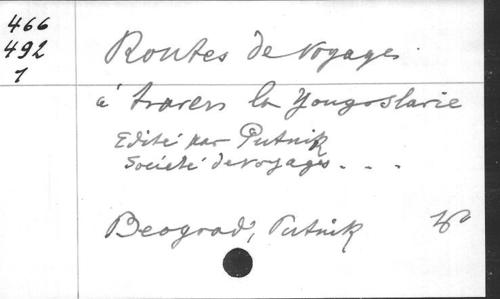 466
492
1
Routes de voyages
à travers la Yougoslavie
Edité par Putnik
Société de voyages . . .
Beograd, Putnik